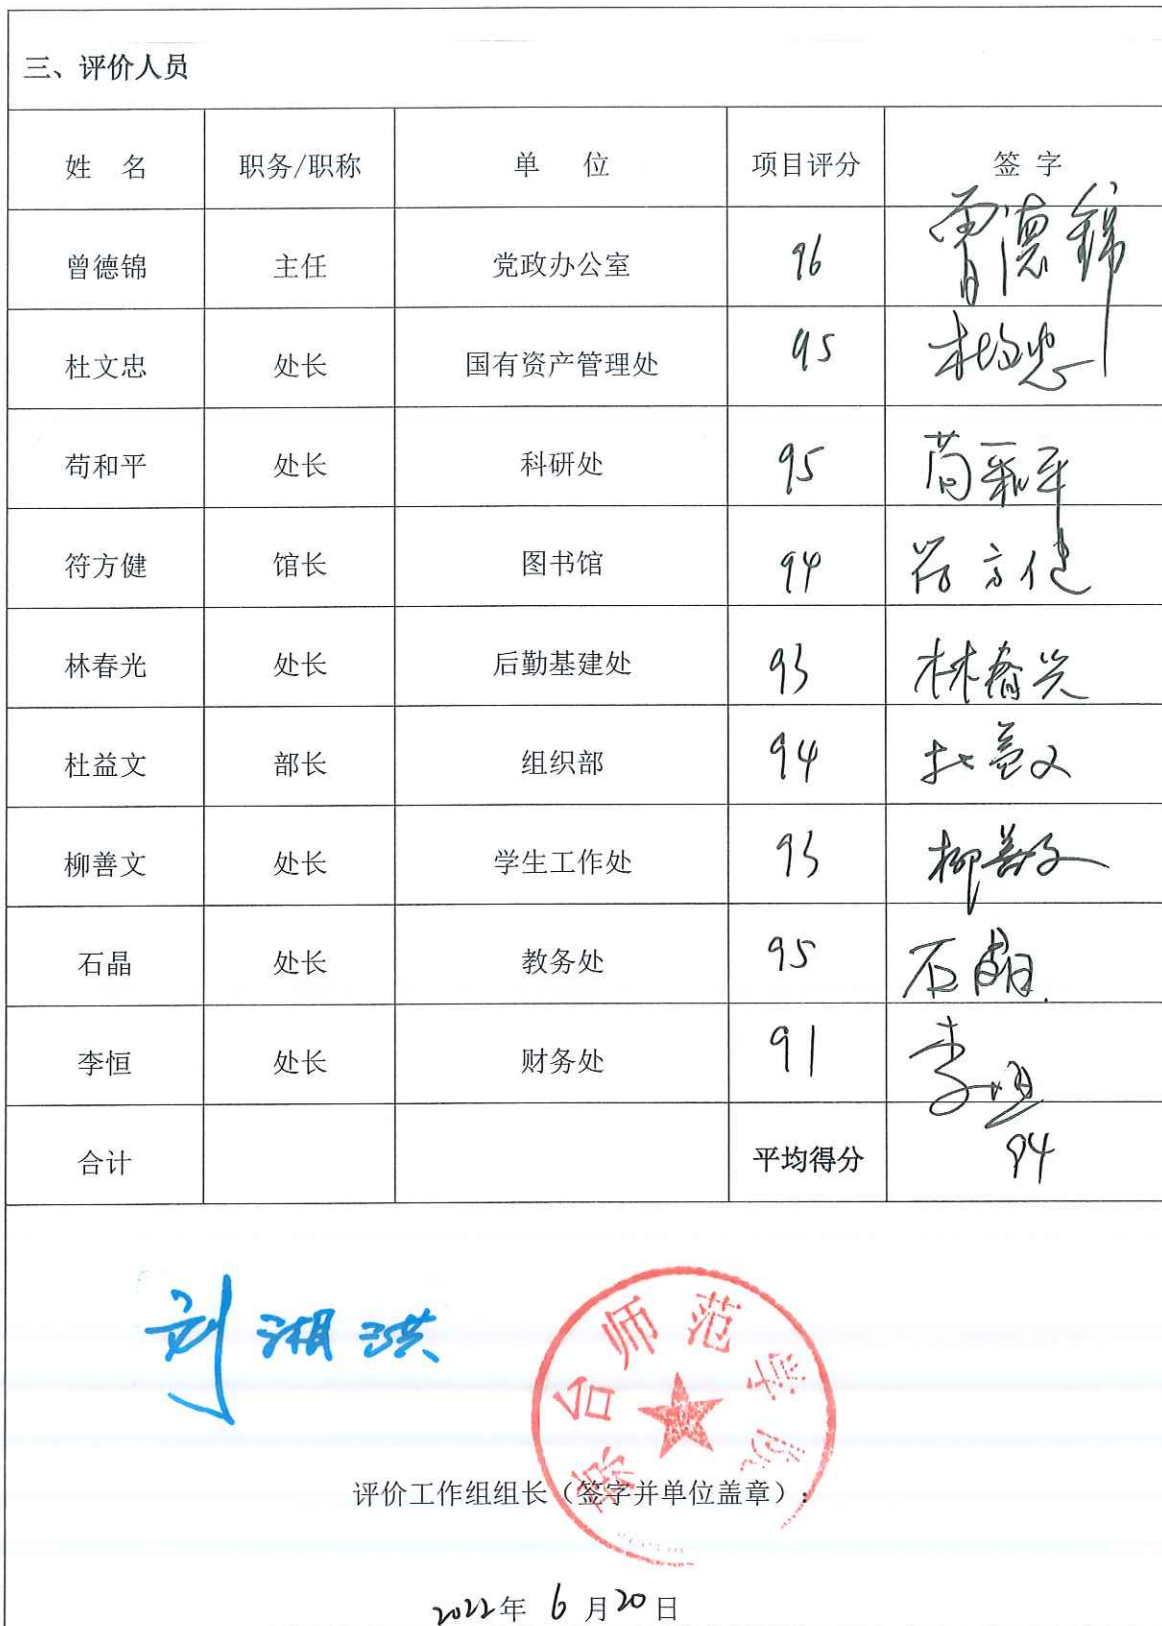 三、评价人员
姓 名 职务/职称 单 位 项目评分 签 字
曾德锦 主任 党政办公室 96 曾德锦
杜文忠 处长 国有资产管理处 95 杜文忠
苟和平 处长 科研处 95 苟和平
符方健 馆长 图书馆 94 符方健
林春光 处长 后勤基建处 93 林春光
杜益文 部长 组织部 94 杜益文
柳善文 处长 学生工作处 93 柳善文
石晶 处长 教务处 95 石晶
李恒 处长 财务处 91 李恒
合计 平均得分 94
刘湘洪
琼台师范学院
评价工作组组长（签字并单位盖章）：
2022年 6 月20日